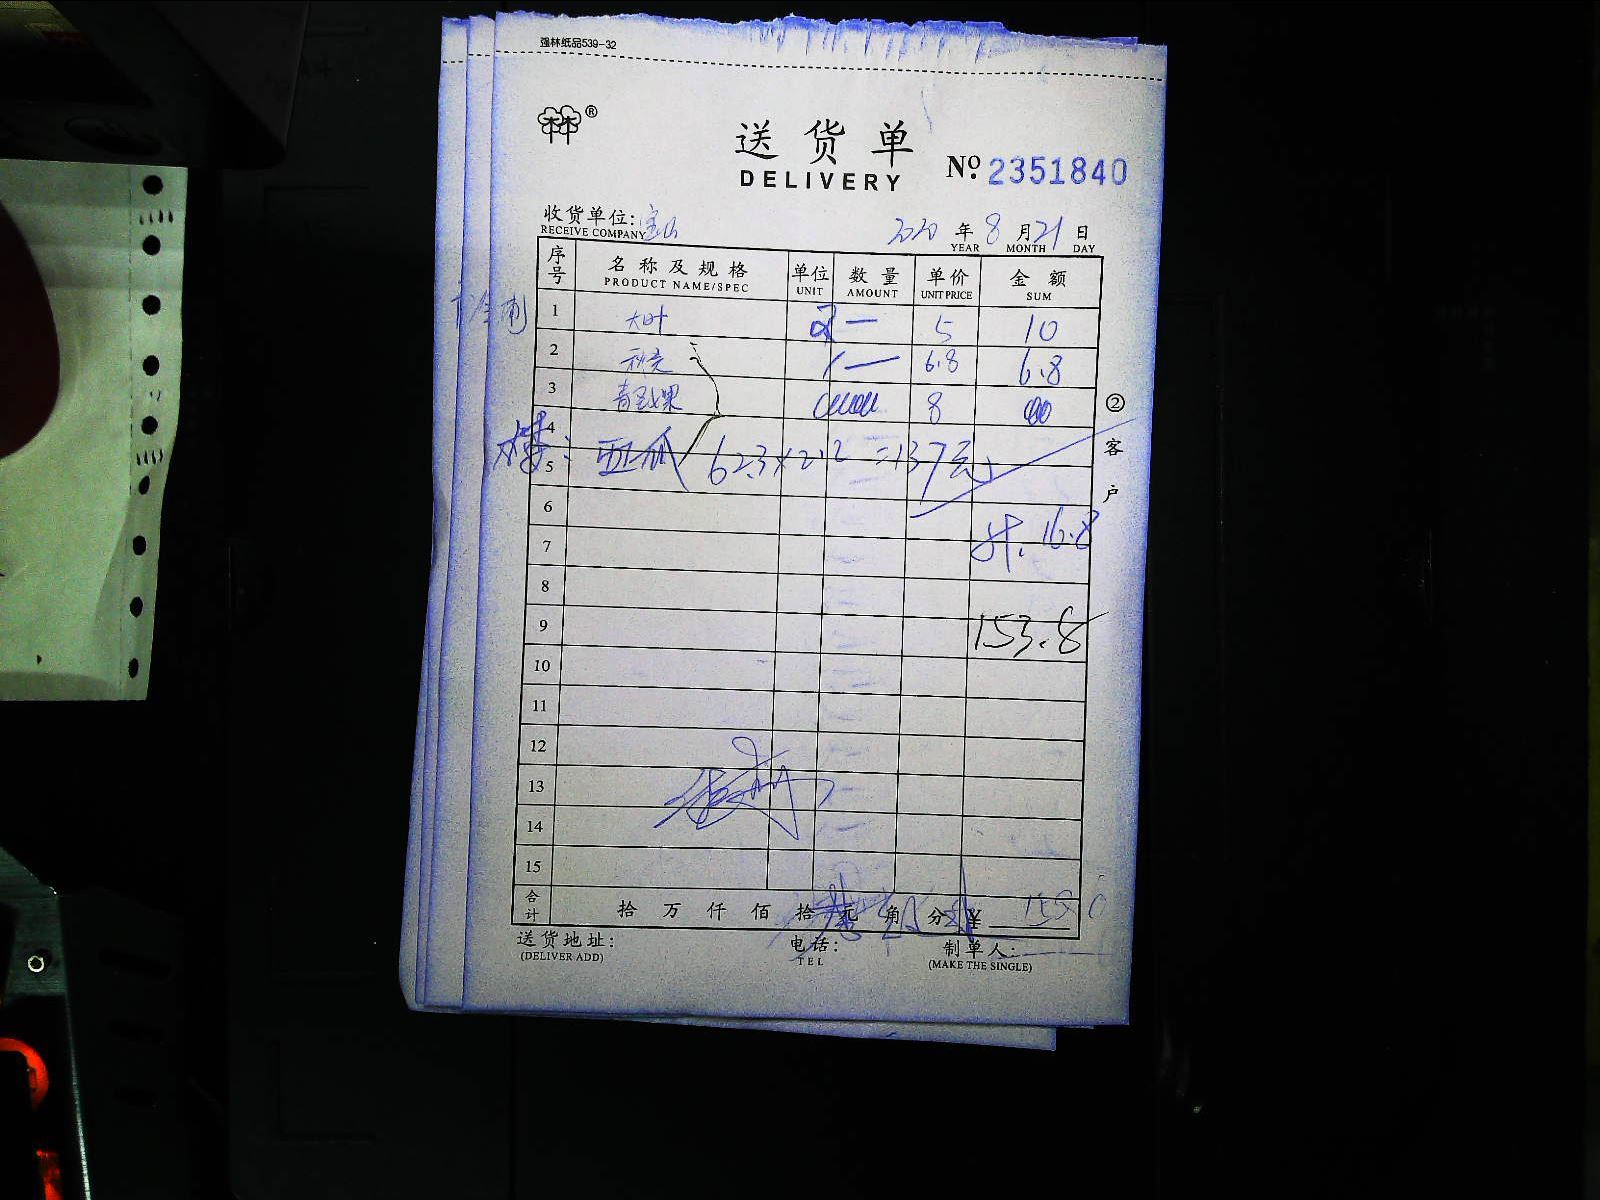 强林纸品539-32
®
送货单
DELIVERY
No. 2351840
收货单位: 宝山
RECEIVE COMPANY
2020 年 8 月 21 日
YEAR MONTH DAY
序号 名称及规格 单位 数量 单价 金额
PRODUCT NAME/SPEC UNIT AMOUNT UNIT PRICE SUM
1 大叶 2 一 5 10
2 1 一 6.8 6.8
3 8
4
5 62.3×2.2=137元
6
计. 16.8
7
8
9 153.8
10
11
12
13
14
15
合计 拾 万 仟 佰 拾 元 角 分 ¥
② 客户
送货地址: 电话: 制单人:
(DELIVER ADD) TEL (MAKE THE SINGLE)